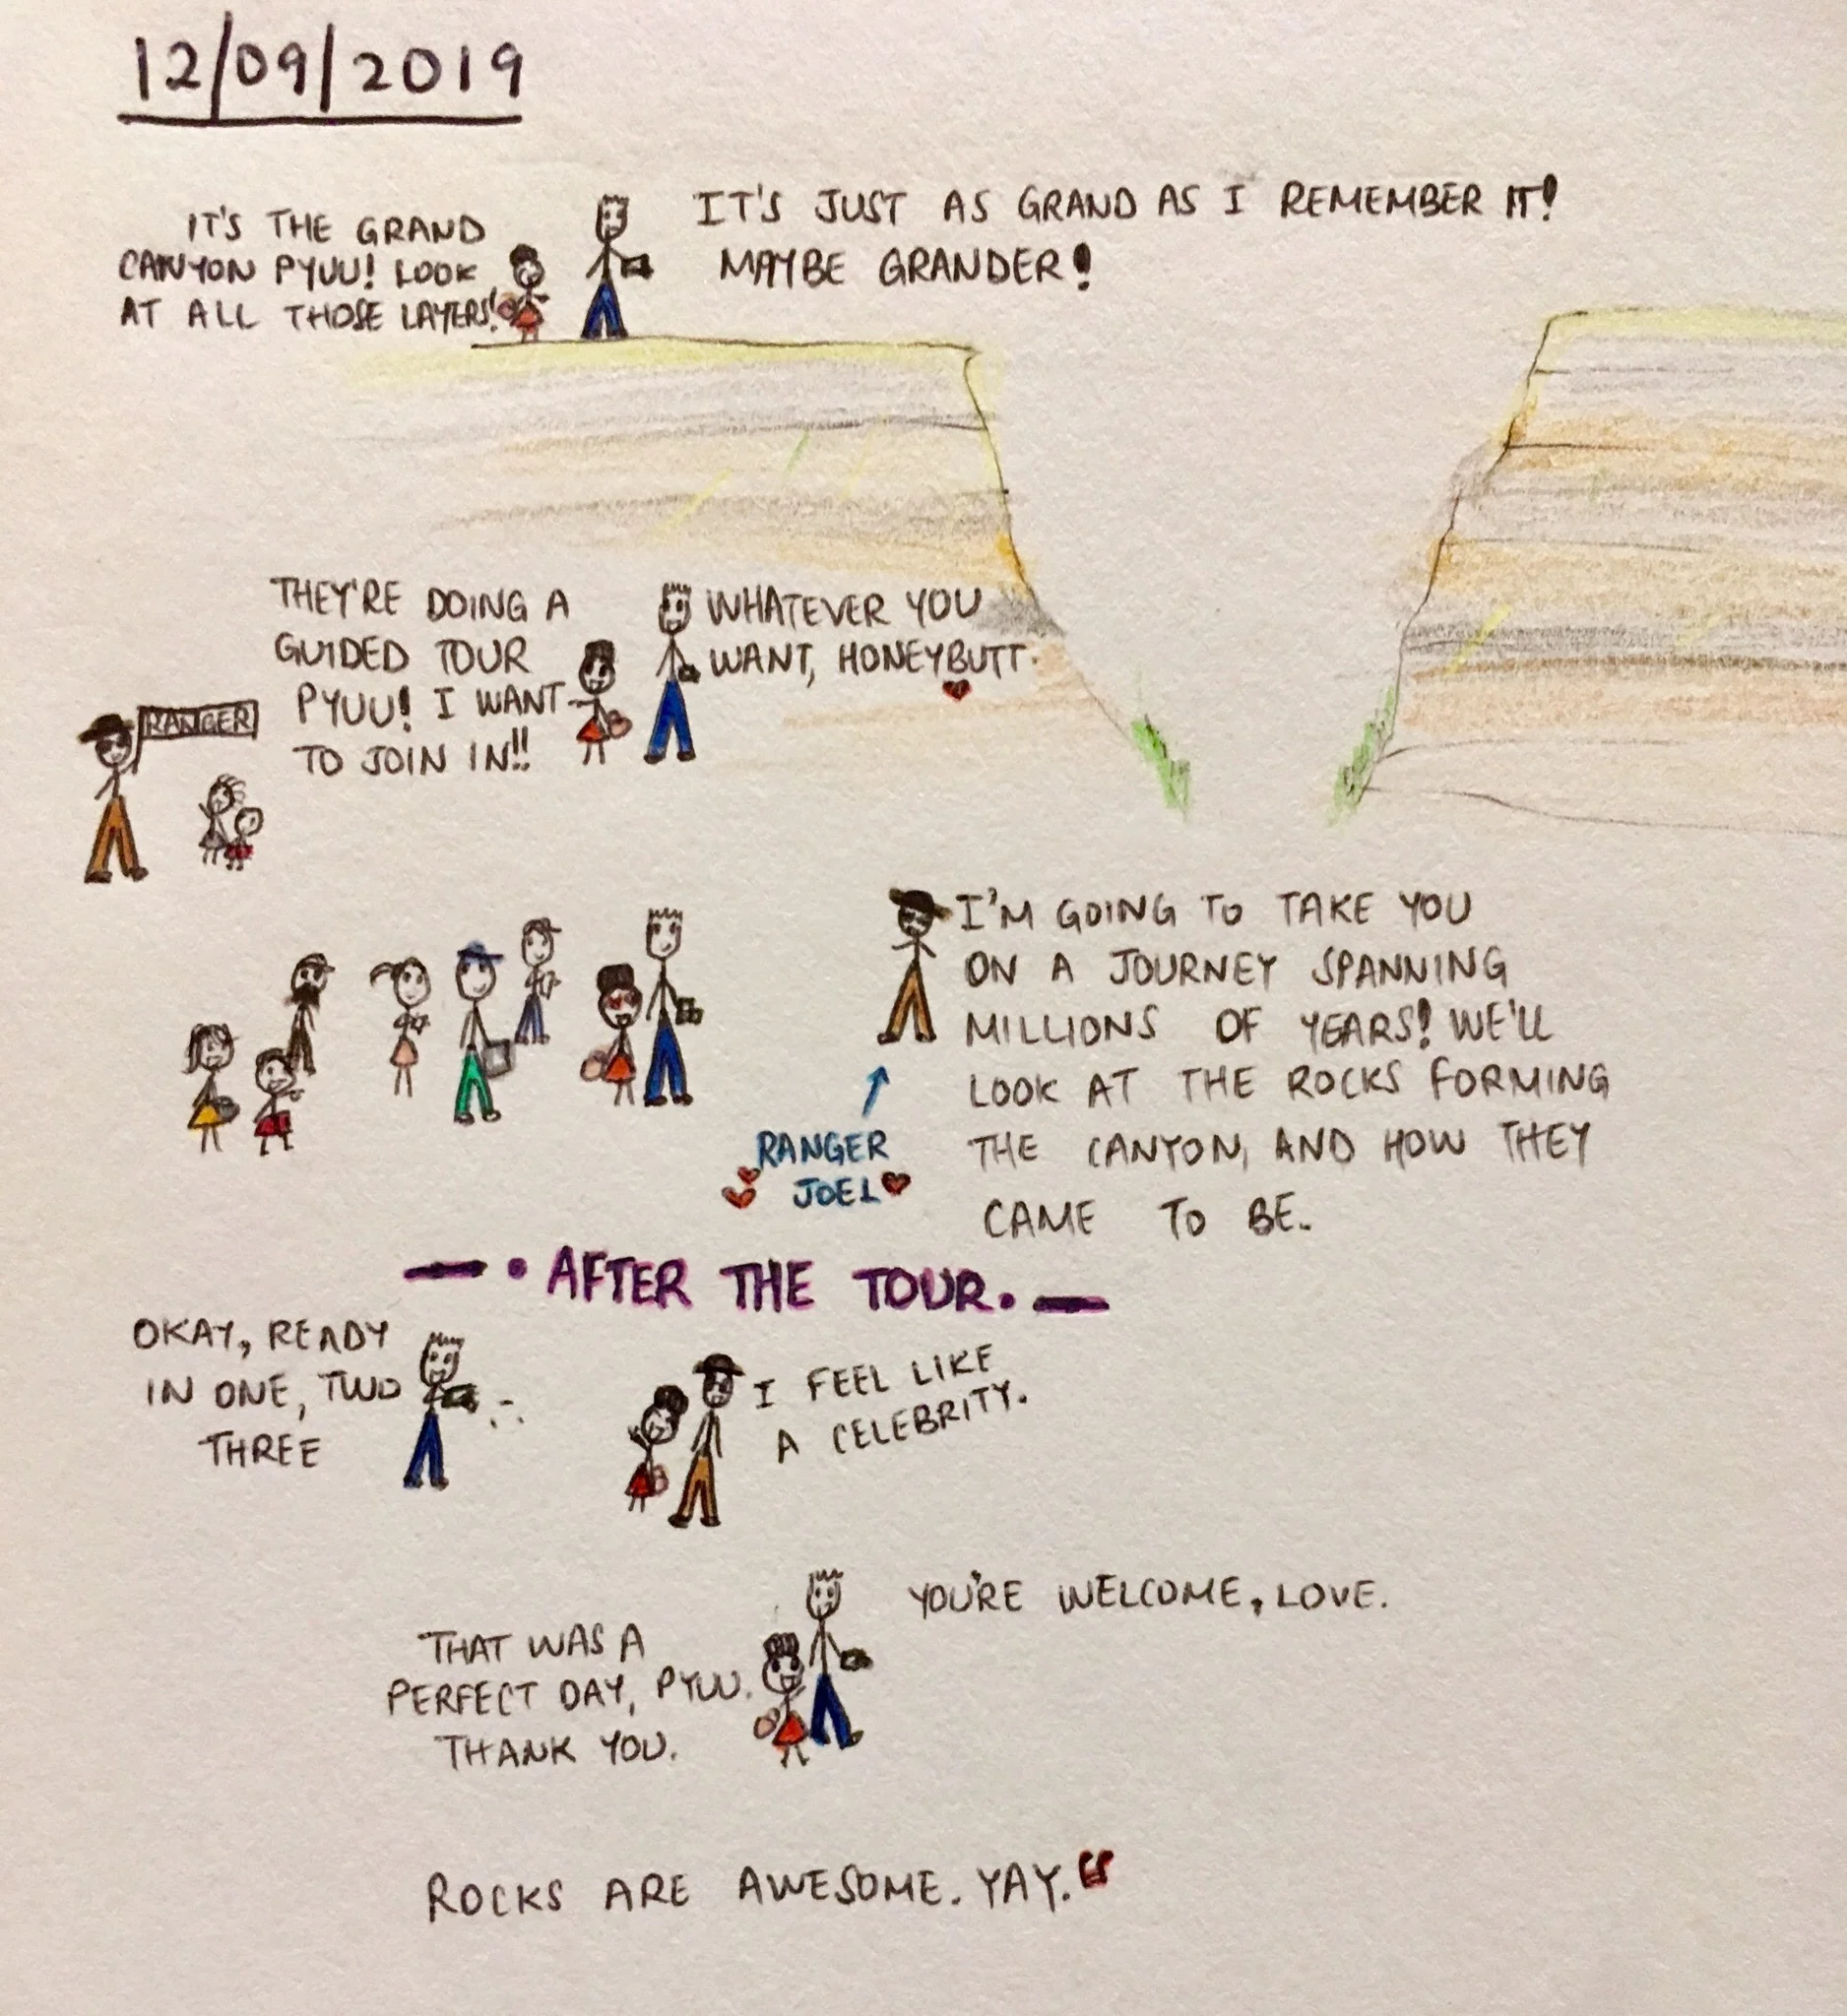 12/09/2019
IT'S THE GRAND
CANYON PYUU! LOOK
AT ALL THOSE LAYERS!
IT'S JUST AS GRAND AS I REMEMBER IT!
MAYBE GRANDER!
THEY'RE DOING A
GUIDED TOUR
PYUU! I WANT
TO JOIN IN!!
WHATEVER YOU
WANT, HONEYBUTT.
RANGER
I'M GOING TO TAKE YOU
ON A JOURNEY SPANNING
MILLIONS OF YEARS! WE'LL
LOOK AT THE ROCKS FORMING
THE CANYON, AND HOW THEY
CAME TO BE.
RANGER
JOEL
AFTER THE TOUR.
OKAY, READY
IN ONE, TWO
THREE
I FEEL LIKE
A CELEBRITY.
THAT WAS A
PERFECT DAY, PYUU.
THANK YOU.
YOU'RE WELCOME, LOVE.
ROCKS ARE AWESOME. YAY.